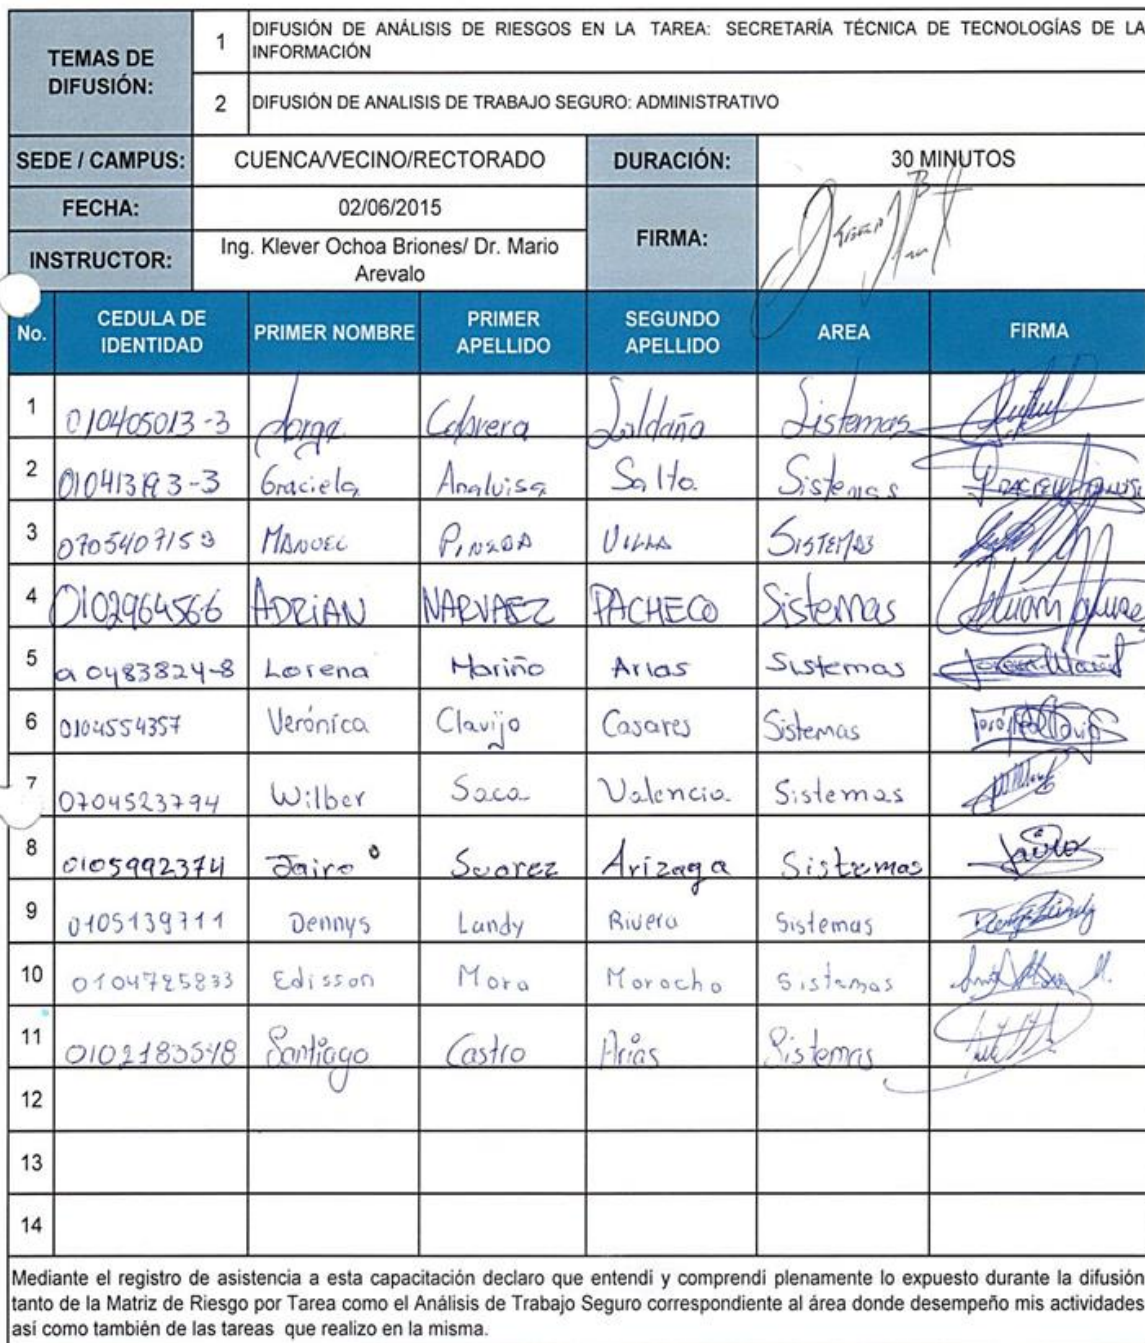 TEMAS DE DIFUSIÓN:
1 DIFUSIÓN DE ANÁLISIS DE RIESGOS EN LA TAREA: SECRETARÍA TÉCNICA DE TECNOLOGÍAS DE LA
INFORMACIÓN
2 DIFUSIÓN DE ANALISIS DE TRABAJO SEGURO: ADMINISTRATIVO
SEDE / CAMPUS: CUENCA/VECINO/RECTORADO DURACIÓN: 30 MINUTOS
FECHA: 02/06/2015 FIRMA:
INSTRUCTOR: Ing. Klever Ochoa Briones/ Dr. Mario
Arevalo
No. CEDULA DE IDENTIDAD PRIMER NOMBRE PRIMER APELLIDO SEGUNDO APELLIDO AREA FIRMA
1 010405013-3 Jorge Cabrera Saldaña Sistemas
2 Graciela Analuisa Salto Sistemas
3 0705407153 MANUEL PINEDA VILLA SISTEMAS
4 0102964566 ADRIAN NARVAEZ PACHECO Sistemas
5 Lorena Mariño Arias Sistemas
6 0104554357 Verónica Clavijo Casares Sistemas
7 0704523794 Wilber Saca Valencia Sistemas
8 0105992374 Jairo Suarez Arízaga Sistemas
9 0105139711 Dennys Landy Rivera Sistemas
10 0104725833 Edisson Mora Morocho Sistemas
11 0102183548 Santiago Castro Arias Sistemas
12
13
14
Mediante el registro de asistencia a esta capacitación declaro que entendí y comprendí plenamente lo expuesto durante la difusión
tanto de la Matriz de Riesgo por Tarea como el Análisis de Trabajo Seguro correspondiente al área donde desempeño mis actividades
así como también de las tareas que realizo en la misma.